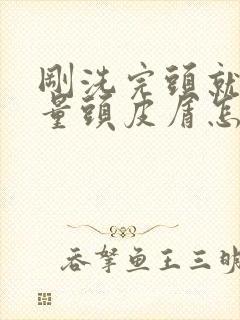 剛洗完頭就
量頭皮屑怎
吞拏鱼王三